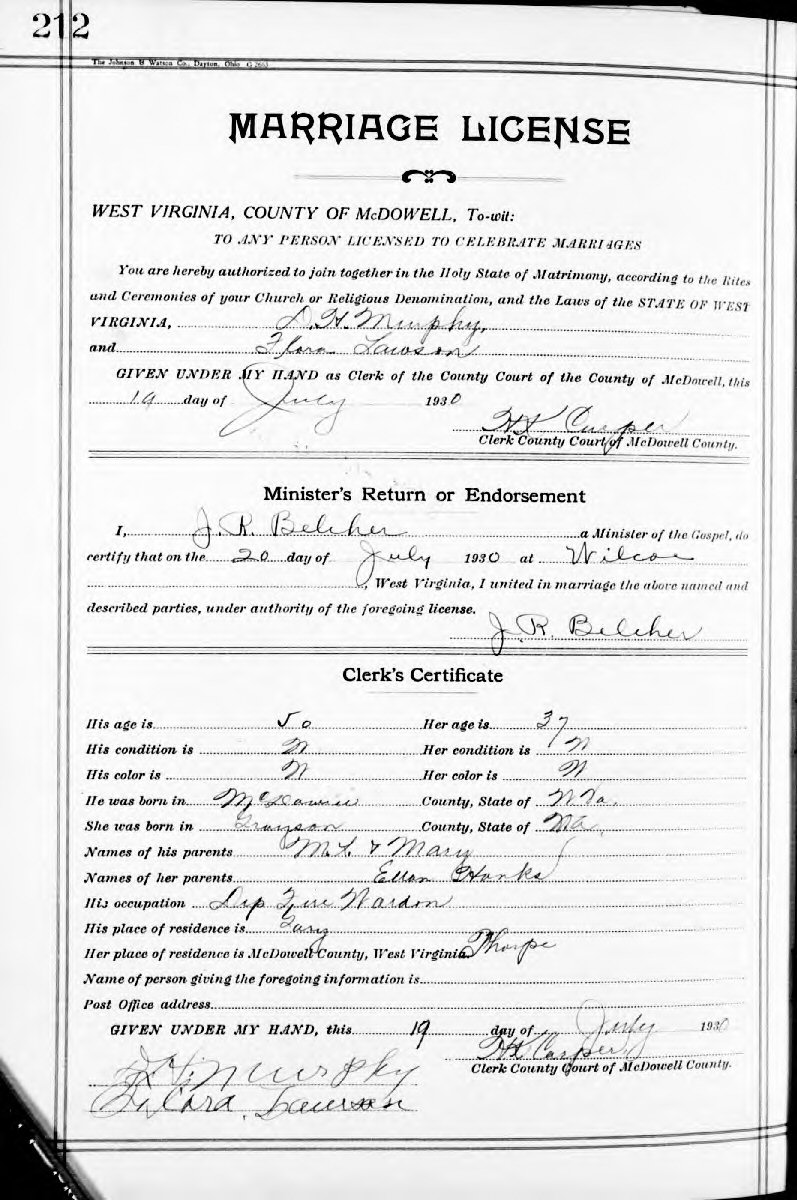 212
The Johnson & Watson Co., Dayton, Ohio
MARRIAGE LICENSE
WEST VIRGINIA, COUNTY OF McDOWELL, To-wit:
TO ANY PERSON LICENSED TO CELEBRATE MARRIAGES
You are hereby authorized to join together in the Holy State of Matrimony, according to the Rites
and Ceremonies of your Church or Religious Denomination, and the Laws of the STATE OF WEST
VIRGINIA, D. H. Murphy,
and Flora Lawson
GIVEN UNDER MY HAND as Clerk of the County Court of the County of McDowell, this
19 day of July 1930
Clerk County Court of McDowell County.
Minister's Return or Endorsement
I, J. R. Belcher a Minister of the Gospel, do
certify that on the 20 day of July 1930 at Wilcoe
, West Virginia, I united in marriage the above named and
described parties, under authority of the foregoing license.
J. R. Belcher
Clerk's Certificate
His age is 50 Her age is 37
His condition is W Her condition is W
His color is W Her color is W
He was born in McDowell County, State of W Va.
She was born in Grayson County, State of Va.
Names of his parents M. L. & Mary
Names of her parents Ellen Hanks
His occupation Dep Fire Warden
His place of residence is Gary
Her place of residence is McDowell County, West Virginia. Thorpe
Name of person giving the foregoing information is
Post Office address
GIVEN UNDER MY HAND, this 19 day of July 1930
Clerk County Court of McDowell County.
Murphy
Flora Lawson